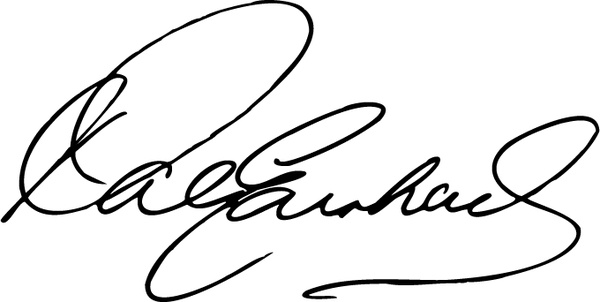 Dale Earnhardt